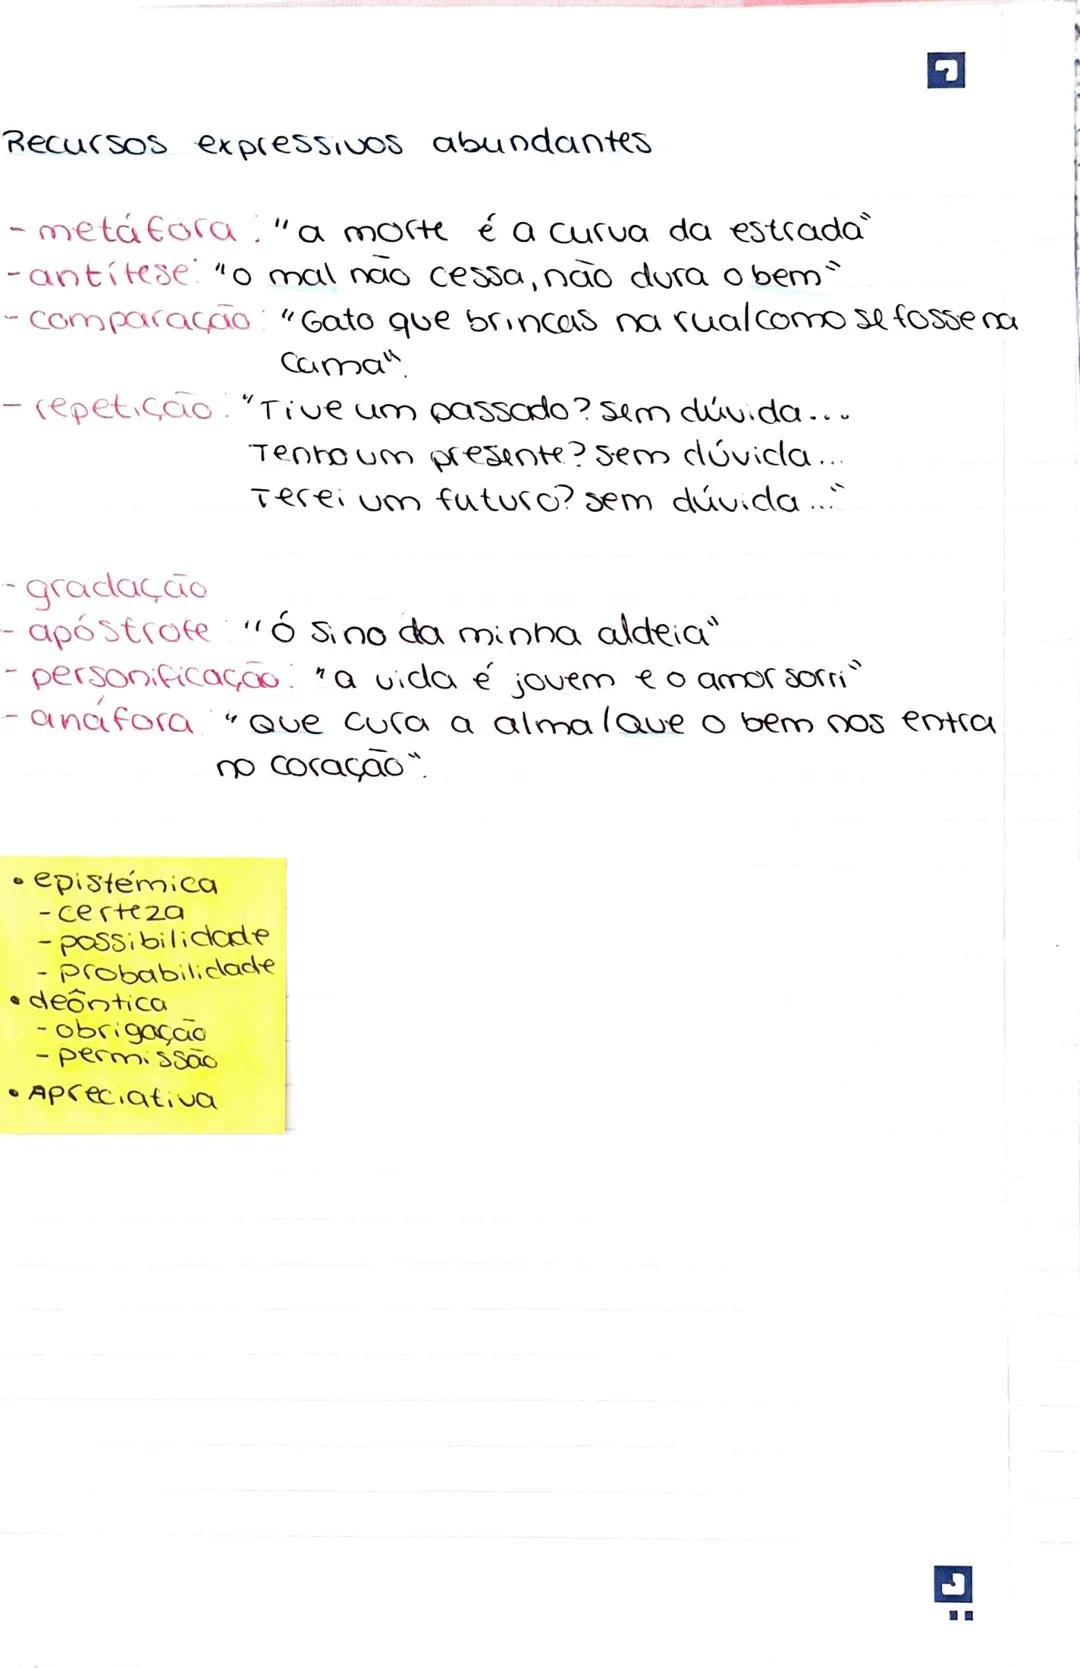 Recursos expressivos abundantes
- metáfora: "a morte é a curva da estrada"
- antítese: "o mal não cessa, não dura o bem"
- comparação: "Gato que brincas na rua/como se fosse na
cama".
- repetição: "Tive um passado? Sem dúvida...
Tenho um presente? Sem dúvida...
Terei um futuro? Sem dúvida..."
- gradação
- apóstrofe "Ó sino da minha aldeia"
- personificação: "a vida é jovem e o amor sorri"
- anáfora "Que cura a alma/Que o bem nos entra
no coração".
• epistémica
- certeza
- possibilidade
- probabilidade
• deôntica
- obrigação
- permissão
• Apreciativa